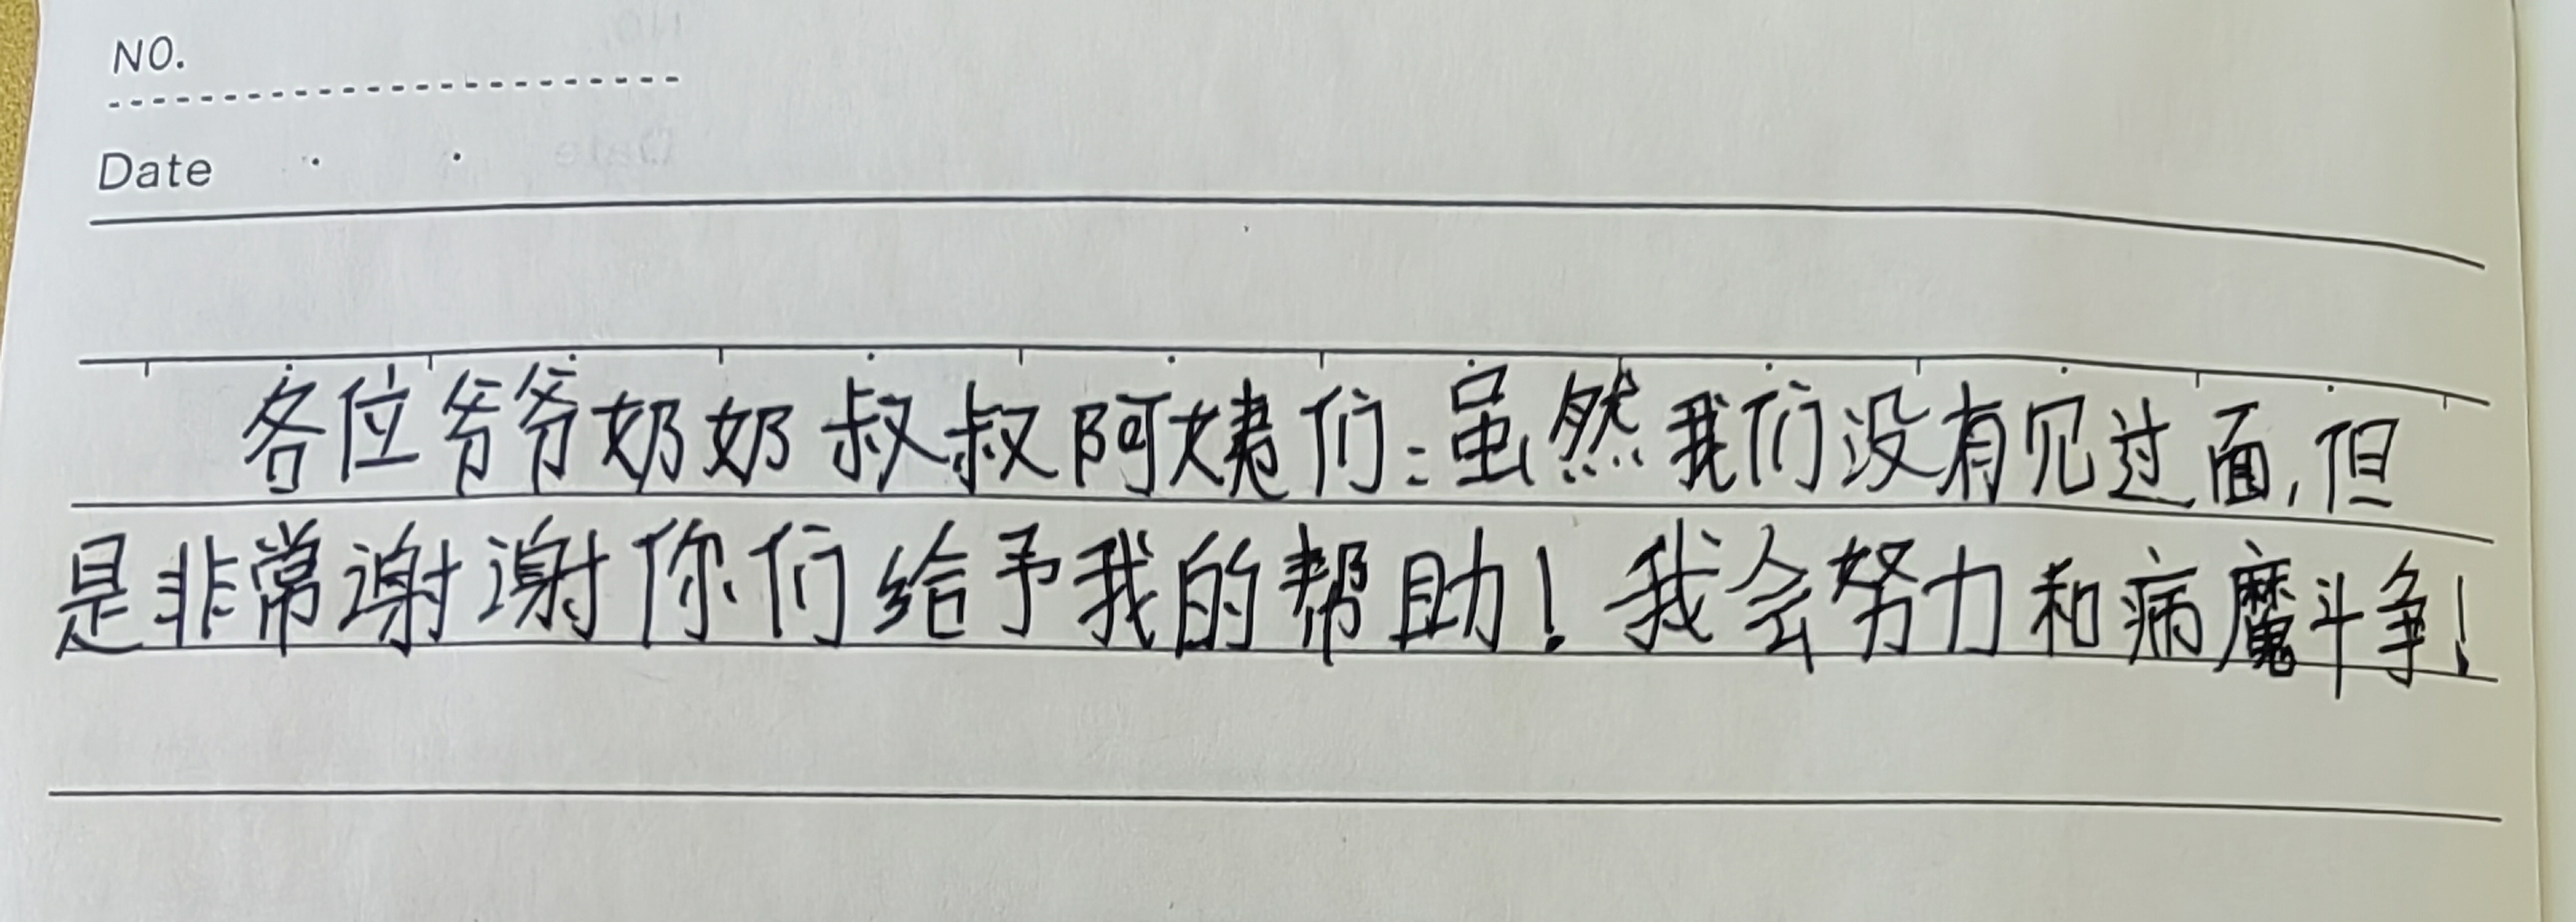 NO.
Date
各位爷爷奶奶叔叔阿姨们:虽然我们没有见过面,但
是非常谢谢你们给予我的帮助!我会努力和病魔斗争!